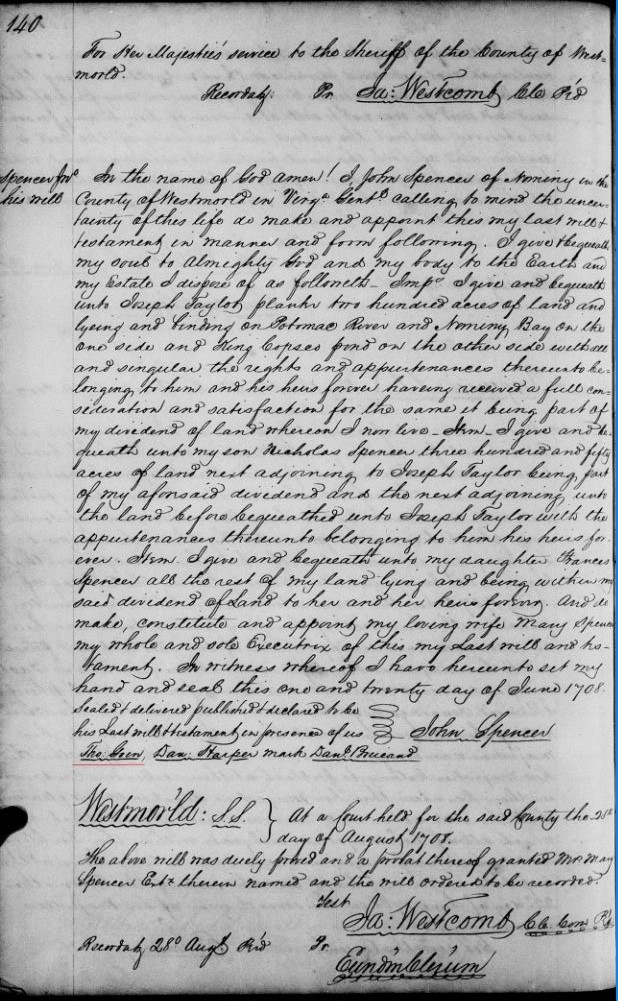 140
For Her Majestie's service to the Sheriff of the County of West-
morld.
Recordatr: Pr Ja: Westcomb Clo Pd
Spencer Jno
his will
In the name of God amen! I John Spencer of Nominy in the
County of Westmorld in Virga Gentn calling to mind the uncer-
tainty of this life do make and appoint this my last will &
testament in manner and form following. I give & bequeath
my soul to Almighty God and my body to the Earth and
my Estate I dispose of as followeth - Imps I give and bequeath
unto Joseph Taylor plantr two hundred acres of land and
lyeing and binding on Potomac River and Nominy Bay on the
one side and King Copsco pond on the other side with all
and singular the rights and appurtenances thereunto be-
longing to him and his heirs forever haveing received a full con-
sideration and satisfaction for the same it being part of
my dividend of land whereon I now live - Item - I give and be-
queath unto my son Nicholas Spencer three hundred and fifty
acres of land next adjoining to Joseph Taylor being part
of my aforesaid dividend and the next adjoining unto
the land before bequeathed unto Joseph Taylor with the
appurtenances thereunto belonging to him his heirs for-
ever. Item I give and bequeath unto my daughter Frances
Spencer all the rest of my land lying and being within my
said dividend of Land to her and her heirs forever. And do
make, constitute and appoint my loving wife Mary Spencer
my whole and sole Executrix of this my Last will and tes-
tament. In witness whereof I have hereunto set my
hand and seal this one and twenty day of June 1708.
Sealed & delivered published & declared to be
his Last will & testament in presence of us John Spencer
Tho: Goen, Dan: Harper mark Danl
Westmorld: S.S. } At a Court held for the said County the 28th
day of August 1708.
The above will was duely proved and a probat thereof granted Mrs Mary
Spencer Extx therein named and the will ordered to be recorded.
Test
Ja: Westcomb Clo Com Pd
Recordatr 28o Augt Pd Pr
Eundm Clerum